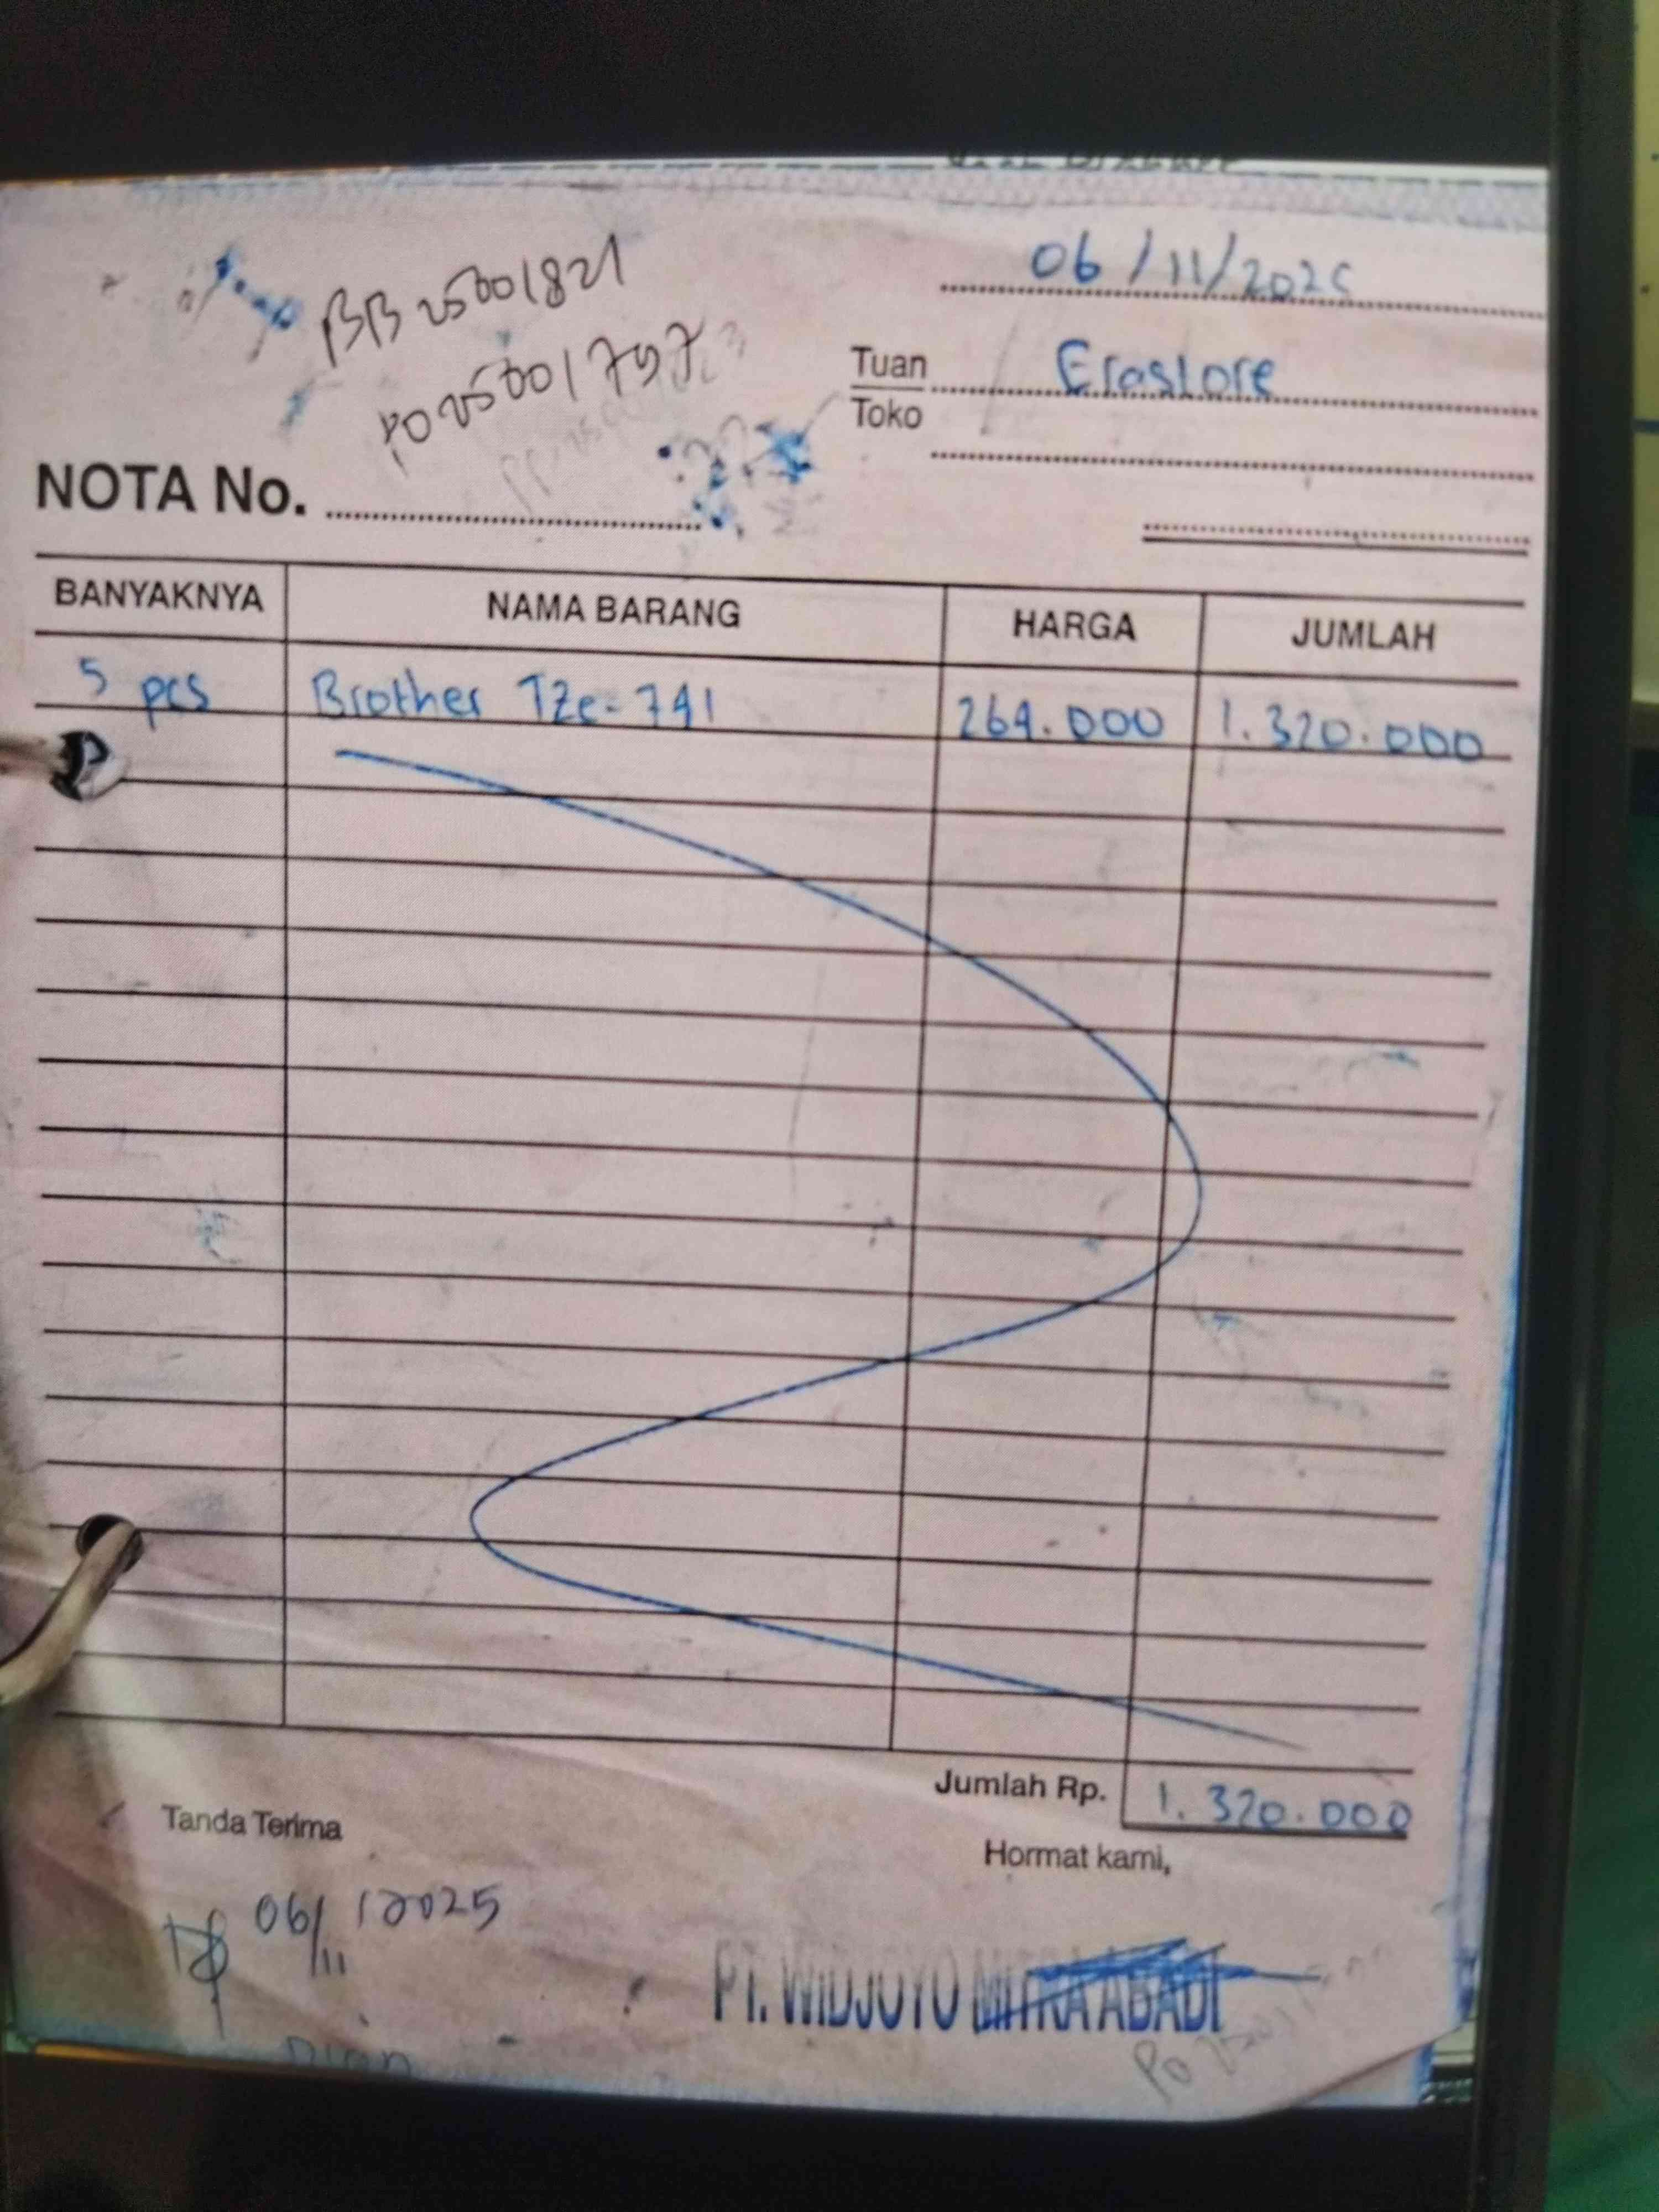 06/11/2025
BB 25001821
PO 25001797
Tuan Erastore
Toko
NOTA No.
BANYAKNYA NAMA BARANG HARGA JUMLAH
5 pcs Brother TZe-741 264.000 1.320.000
Jumlah Rp. 1.320.000
Tanda Terima
Hormat kami,
06/11/2025
PT. WIDJOYO MITRA ABADI